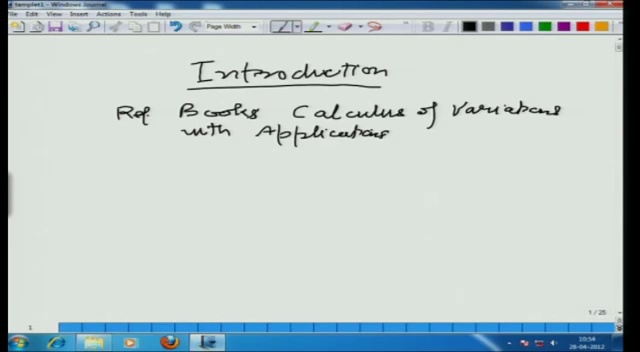 templet1 - Windows Journal
File Edit View Insert Actions Tools Help
Page Width
Introduction
Ref. Books Calculus of Variations
with Applications
1 / 25
1
10:54
26-04-2012